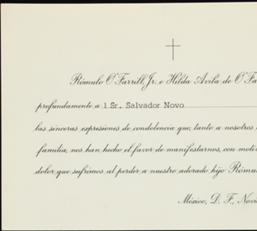 Rómulo O'Farrill, Jr. e Hilda Avila de O'Fa
profundamente a l Sr. Salvador Novo
las sinceras expresiones de condolencia que, tanto a nosotros
familia, nos han hecho el favor de manifestarnos, con moti
dolor que sufrimos al perder a nuestro adorado hijo Rómu
México, D. F. Novi